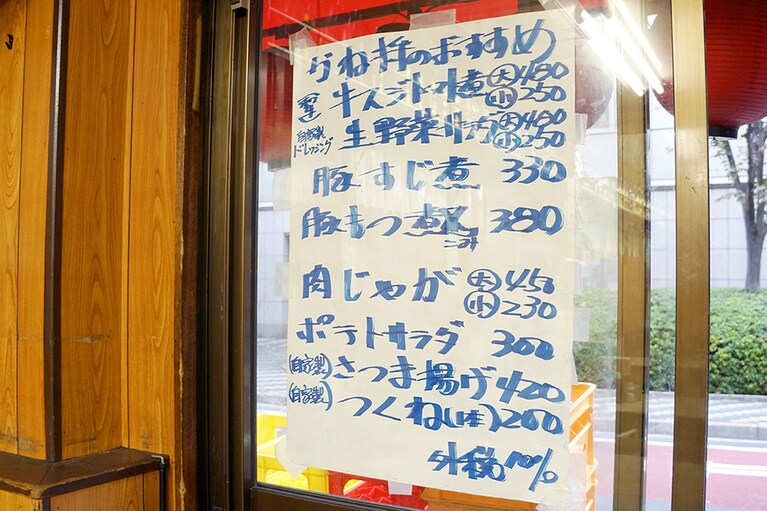 かね井のおすすめ
牛スジトマト煮 大480
小250
自家製ドレッシング 生野菜サラダ 大480
小250
豚すじ煮 330
豚もつ煮込み 380
肉じゃが 大458
小230
ポテトサラダ 300
(自家製)さつま揚げ 420
(自家製)つくね(1本)200
外税10%